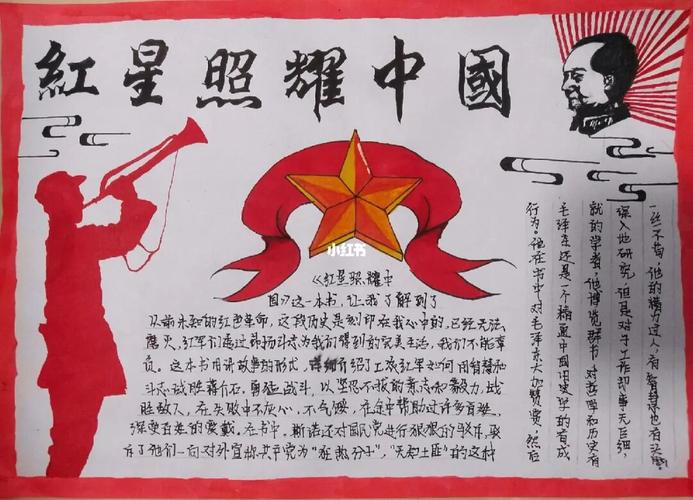 紅星照耀中國
小红书
《红星照耀中
国》这一本书，让我了解到了
从前未知的红色革命，这段历史是刻印在我心中的，已经无法
磨灭，红军们通过昂扬斗志为我们得到的完美生活，我们不能辜
负。这本书用讲故事的形式，详细介绍了工农红军如何用智慧和
斗志战胜蒋介石，勇猛战斗，以坚忍不拔的意志和毅力，战
胜敌人，在失败中不灰心，不气馁，在途中帮助过许多百姓，
深受百姓的爱戴。在书中，斯诺还对国民党进行狠狠的驳斥，驳
斥了他们一向对外宣称共产党为“狂热分子”，“无知土匪”的这种
行为。他在书中对毛泽东大加赞赏，然后
毛泽东还是一个精通中国旧史学的有成
就的学者，他博览群书，对哲学和历史有
深入地研究，但是对于工作却事无巨细，
一丝不苟，他的精力过人，有智慧也有头脑